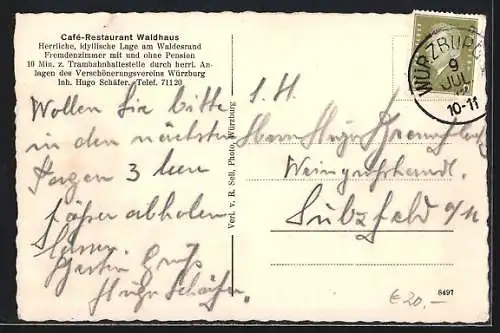 Café-Restaurant Waldhaus
Herrliche, idyllische Lage am Waldesrand
Fremdenzimmer mit und ohne Pension
10 Min. z. Trambahnhaltestelle durch herrl. An-
lagen des Verschönerungsvereins Würzburg
Inh. Hugo Schäfer. Telef. 71120
Wollen Sie bitte
in den nächsten
Tagen 3 leere
Fässer abholen
lassen.
Besten Gruß
Hugo Schäfer.
Verl. v. R. Sell, Photo, Würzburg
WÜRZBURG
9
JUL
10-11
S. H.
Herrn Hugo
Weingroßhandl.
Sulzfeld a/M
8497
€ 20,-